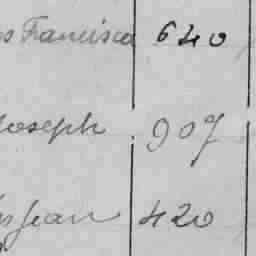 Francisca 640
Joseph 907
Jean 420